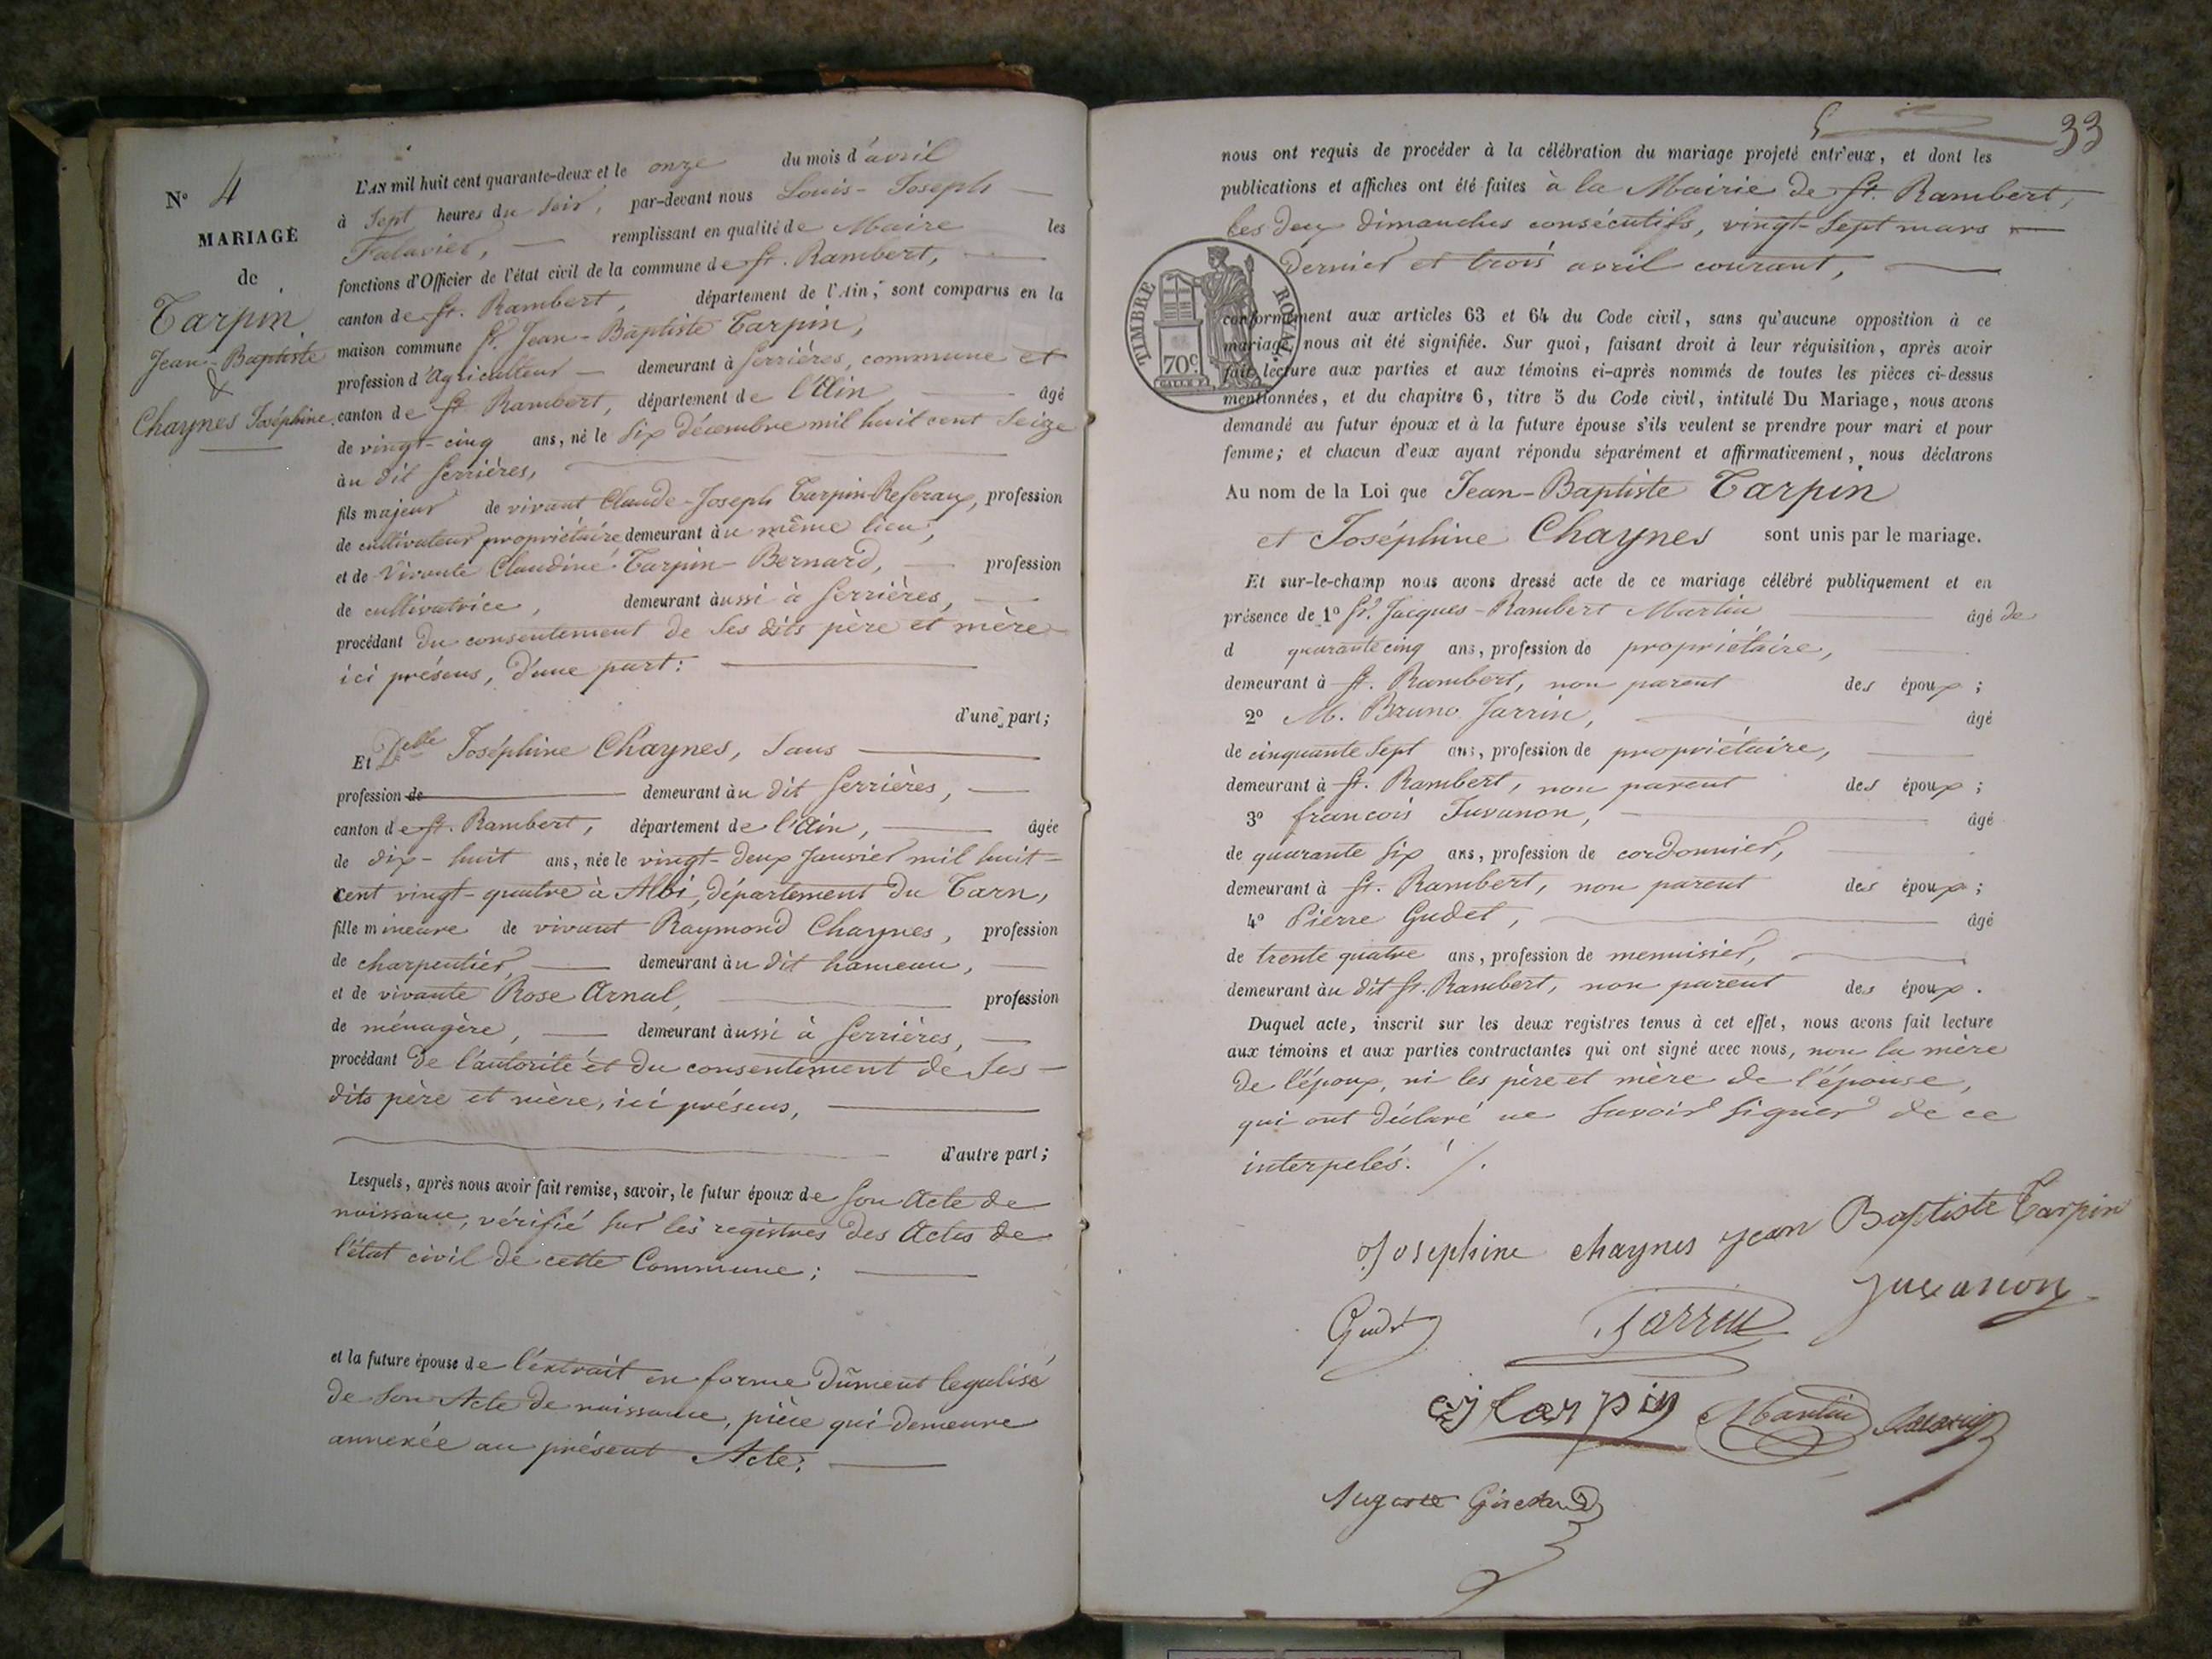 N.° 4
MARIAGE
de
Tarpin
Jean-Baptiste
&
Chaynes Joséphine.
L'AN mil huit cent quarante-deux et le onze du mois d'avril
à Sept heures du soir, par-devant nous Louis-Joseph
Falavier, remplissant en qualité de Maire les
fonctions d'Officier de l'état civil de la commune de St. Rambert,
canton de St. Rambert, département de l'Ain, sont comparus en la
maison commune Sr. Jean-Baptiste Tarpin,
profession d'Agriculteur demeurant à Serrières, commune et
canton de St. Rambert, département de l'Ain âgé
de vingt-cinq ans, né le six décembre mil huit cent seize
àu dit Serrières,
fils majeur de vivant Claude-Joseph Tarpin-Referay, profession
de cultivateur propriétaire demeurant àu même lieu,
et de vivante Claudine Tarpin-Bernard, profession
de cultivatrice, demeurant àussi à Serrières,
procédant du consentement de ses dits père et mère
ici présens, d'une part:
d'une part;
Et Delle Joséphine Chaynes, sans
profession de demeurant àu dit Serrières,
canton de St. Rambert, département de l'Ain, âgée
de dix-huit ans, née le vingt-deux Janvier mil huit-
cent vingt-quatre à Albi, département du Tarn,
fille mineure de vivant Raymond Chaynes, profession
de charpentier, demeurant àu dit hameau,
et de vivante Rose Arnal, profession
de ménagère, demeurant àussi à Serrières,
procédant de l'autorité et du consentement de ses-
dits père et mère, ici présens,
d'autre part;
Lesquels, après nous avoir fait remise, savoir, le futur époux de son Acte de
naissance, vérifié sur les registres des Actes de
l'état civil de cette Commune;
et la future épouse de l'extrait en forme dûment legalisé
de son Acte de naissance, pièce qui demeure
annexée au présent Acte;
33
nous ont requis de procéder à la célébration du mariage projeté entr'eux, et dont les
publications et affiches ont été faites à la Mairie de St. Rambert,
les deux dimanches consécutifs, vingt-sept mars
dernier et trois avril courant,
TIMBRE ROYAL.
70c.
conformément aux articles 63 et 64 du Code civil, sans qu'aucune opposition à ce
mariage nous ait été signifiée. Sur quoi, faisant droit à leur réquisition, après avoir
fait lecture aux parties et aux témoins ci-après nommés de toutes les pièces ci-dessus
mentionnées, et du chapitre 6, titre 5 du Code civil, intitulé Du Mariage, nous avons
demandé au futur époux et à la future épouse s'ils veulent se prendre pour mari et pour
femme; et chacun d'eux ayant répondu séparément et affirmativement, nous déclarons
Au nom de la Loi que Jean-Baptiste Tarpin
et Joséphine Chaynes sont unis par le mariage.
Et sur-le-champ nous avons dressé acte de ce mariage célébré publiquement et en
présence de 1° Sr. Jacques-Rambert Martin âgé de
d quarante cinq ans, profession de propriétaire,
demeurant à St. Rambert, non parent des époux;
2° M. Bruno Jarrin, âgé
de cinquante sept ans, profession de propriétaire,
demeurant à St. Rambert, non parent des époux;
3° françois Juvanon, âgé
de quarante six ans, profession de cordonnier,
demeurant à St. Rambert, non parent des époux;
4° Pierre Gudet, âgé
de trente quatre ans, profession de menuisier,
demeurant àu dit St. Rambert, non parent des époux.
Duquel acte, inscrit sur les deux registres tenus à cet effet, nous avons fait lecture
aux témoins et aux parties contractantes qui ont signé avec nous, non la mère
de l'époux, ni les père et mère de l'épouse,
qui ont déclaré ne savoir signer de ce
interpelés. /.
Josephine chaynes Jean Baptiste Tarpin
Juvanon
Gudet Jarrin
cj tarpin Martin Falavier
Auguste